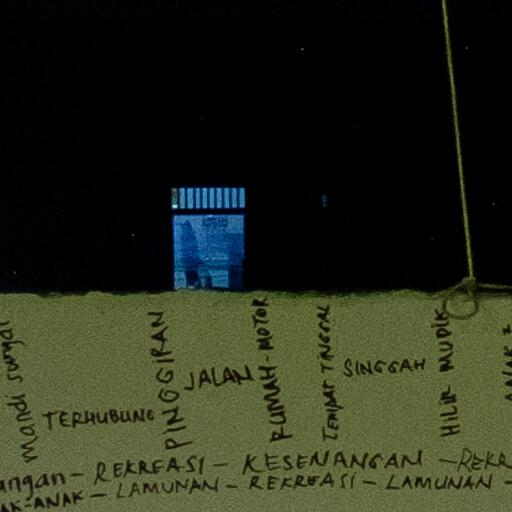 mandi sungai
TERHUBUNG
PINGGIRAN
JALAN
RUMAH-MOTOR
TEMPAT TINGGAL
SINGGAH
HILIR MUDIK
ANAK
angan - REKREASI - KESENANGAN - REKR
AK-ANAK - LAMUNAN - REKREASI - LAMUNAN -